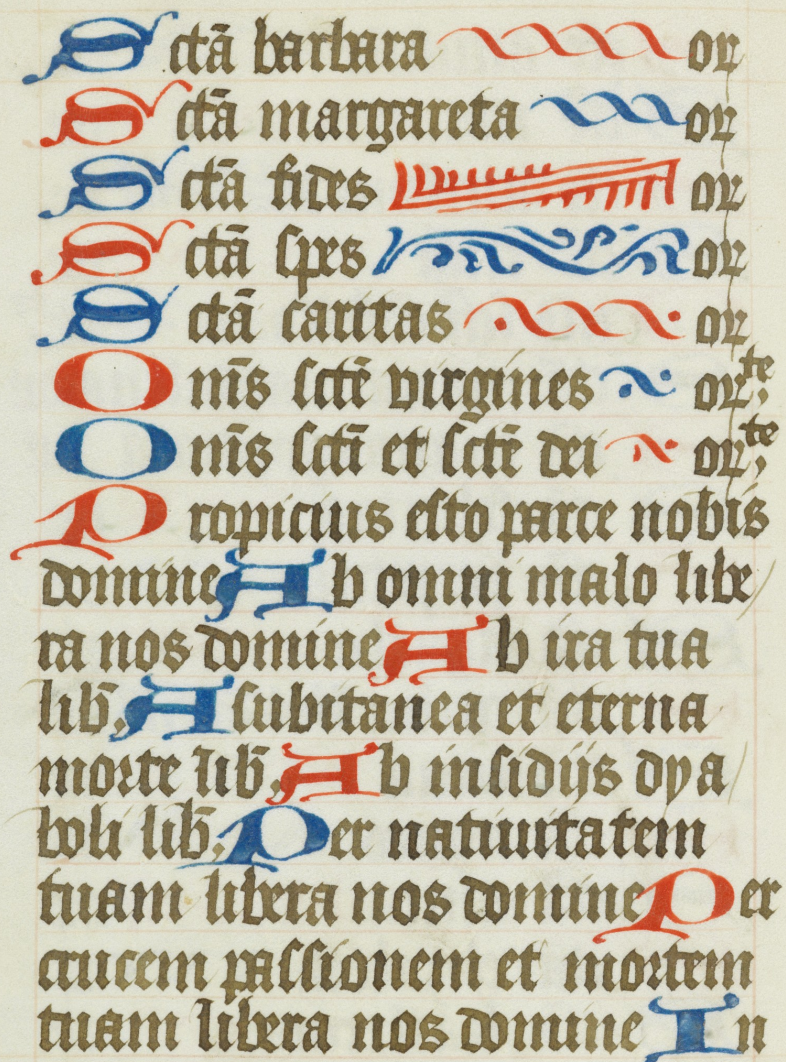 Sctā barbara or
Sctā margareta or
Sctā fides or
Sctā spes or
Sctā caritas or
Om̄s sctē virgines orte;
Om̄s scti et sctē dei orte;
Propicius esto parce nobis
domine Ab omni malo libe
ra nos domine Ab ira tua
lib̄, A subitanea et eterna
morte lib̄, Ab insidijs dya
boli lib̄, Per natiuitatem
tuam libera nos domine Per
crucem passionem et mortem
tuam libera nos domine In